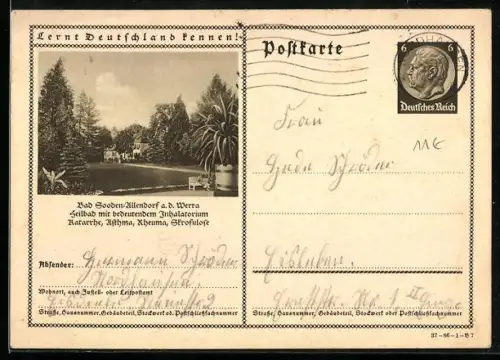 Lernt Deutschland kennen!
Postkarte
6 6
Deutsches Reich
11€
Bad Sooden/Allendorf a. d. Werra
Heilbad mit bedeutendem Inhalatorium
Katarrhe, Asthma, Rheuma, Skrofulose
Frau
Schröder
Absender: Hermann Schröder
Nordhausen
Wohnort, auch Zustell- oder Leitpostamt
Straße, Hausnummer, Gebäudeteil, Stockwerk od. Postschließfachnummer
Eisleben.
Straße, Hausnummer, Gebäudeteil, Stockwerk oder Postschließfachnummer
37-86-1-B7